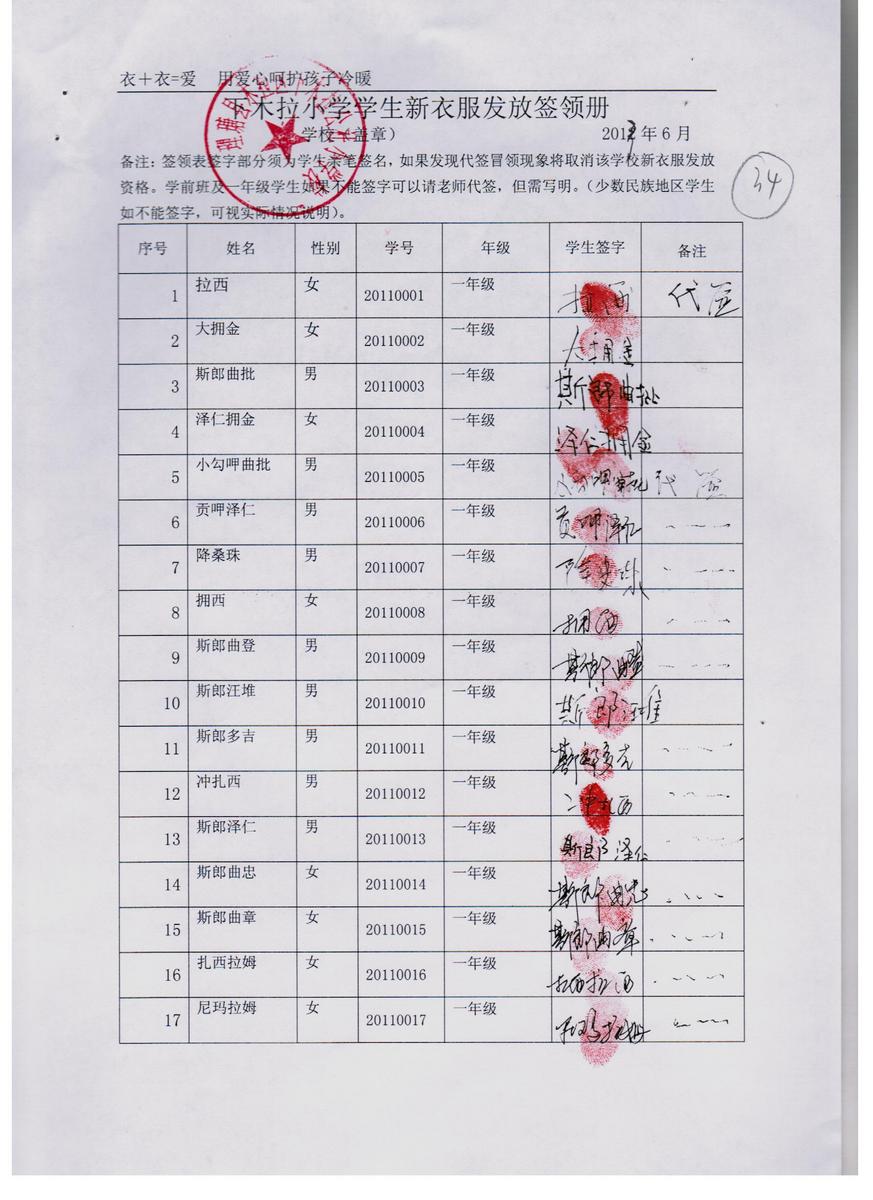 衣＋衣=爱 用爱心呵护孩子冷暖
木拉小学学生新衣服发放签领册
学校（盖章） 2013年6月
34
备注：签领表签字部分须为学生亲笔签名，如果发现代签冒领现象将取消该学校新衣服发放
资格。学前班及一年级学生如果不能签字可以请老师代签，但需写明。（少数民族地区学生
如不能签字，可视实际情况说明）。
序号 姓名 性别 学号 年级 学生签字 备注
1 拉西 女 20110001 一年级 拉西 代签
2 大拥金 女 20110002 一年级 大拥金
3 斯郎曲批 男 20110003 一年级 斯郎曲批
4 泽仁拥金 女 20110004 一年级 泽仁拥金
5 小勾呷曲批 男 20110005 一年级 代签
6 贡呷泽仁 男 20110006 一年级 贡呷泽仁
7 降桑珠 男 20110007 一年级 降桑珠
8 拥西 女 20110008 一年级 拥西
9 斯郎曲登 男 20110009 一年级 斯郎曲登
10 斯郎汪堆 男 20110010 一年级 斯郎汪堆
11 斯郎多吉 男 20110011 一年级 斯郎多吉
12 冲扎西 男 20110012 一年级 冲扎西
13 斯郎泽仁 男 20110013 一年级 斯郎泽仁
14 斯郎曲忠 女 20110014 一年级 斯郎曲忠
15 斯郎曲章 女 20110015 一年级 斯郎曲章
16 扎西拉姆 女 20110016 一年级
17 尼玛拉姆 女 20110017 一年级 尼玛拉姆